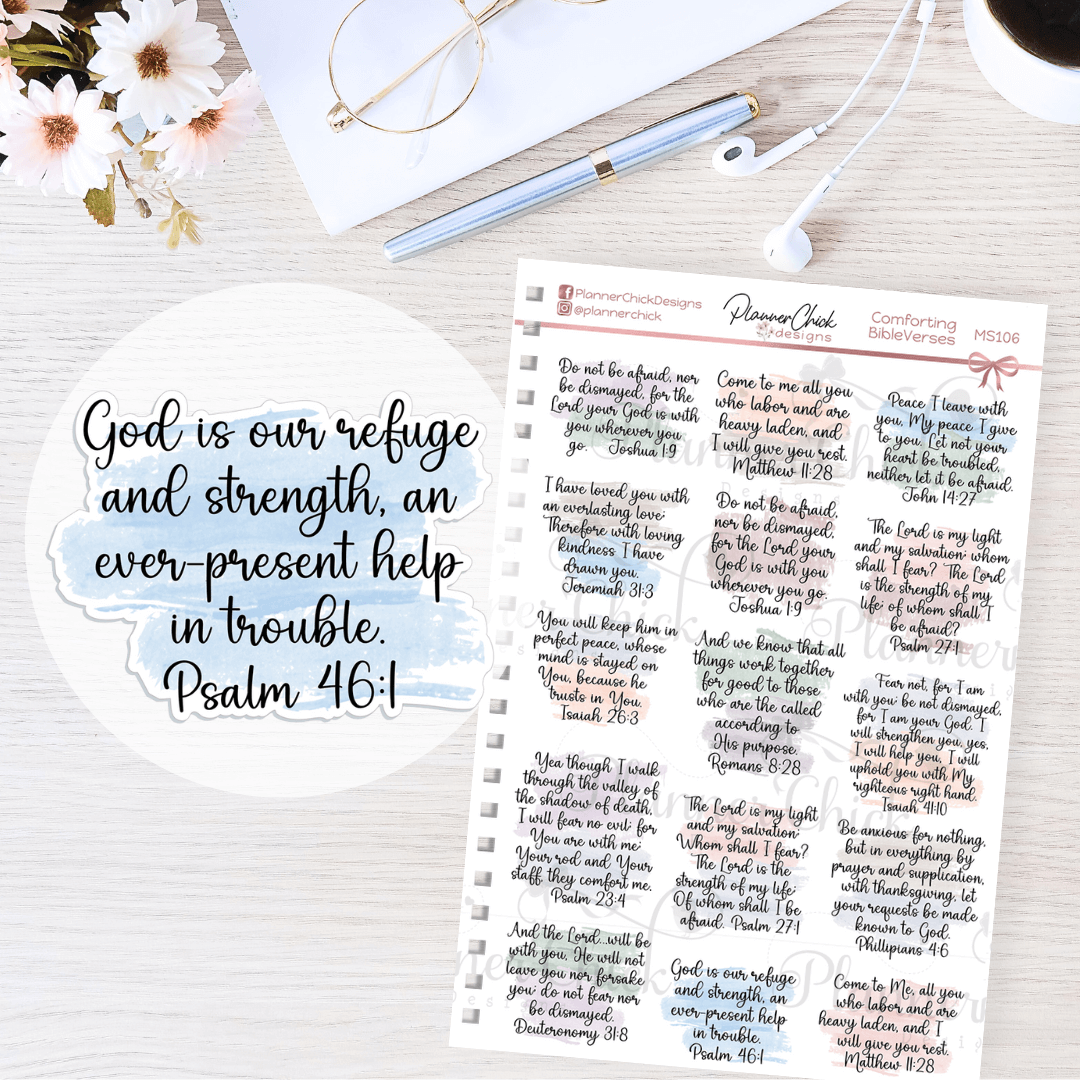 God is our refuge
and strength, an
ever-present help
in trouble.
Psalm 46:1
PlannerChickDesigns
@plannerchick
PlannerChick
designs
Comforting
BibleVerses
MS106
Do not be afraid, nor
be dismayed, for the
Lord your God is with
you wherever you
go. Joshua 1:9
Come to me all you
who labor and are
heavy laden, and
I will give you rest.
Matthew 11:28
Peace I leave with
you, My peace I give
to you. Let not your
heart be troubled,
neither let it be afraid.
John 14:27
I have loved you with
an everlasting love;
Therefore with loving
kindness I have
drawn you.
Jeremiah 31:3
Do not be afraid,
nor be dismayed,
for the Lord your
God is with you
wherever you go.
Joshua 1:9
The Lord is my light
and my salvation; whom
shall I fear? The Lord
is the strength of my
life; of whom shall I
be afraid?
Psalm 27:1
You will keep him in
perfect peace, whose
mind is stayed on
You, because he
trusts in You.
Isaiah 26:3
And we know that all
things work together
for good to those
who are the called
according to
His purpose.
Romans 8:28
Fear not, for I am
with you; be not dismayed,
for I am your God. I
will strengthen you, yes,
I will help you, I will
uphold you with My
righteous right hand.
Isaiah 41:10
Yea though I walk
through the valley of
the shadow of death,
I will fear no evil; for
You are with me;
Your rod and Your
staff, they comfort me.
Psalm 23:4
The Lord is my light
and my salvation;
Whom shall I fear?
The Lord is the
strength of my life;
Of whom shall I be
afraid. Psalm 27:1
Be anxious for nothing,
but in everything by
prayer and supplication,
with thanksgiving, let
your requests be made
known to God.
Phillipians 4:6
And the Lord...will be
with you, He will not
leave you nor forsake
you; do not fear nor
be dismayed.
Deuteronomy 31:8
God is our refuge
and strength, an
ever-present help
in trouble.
Psalm 46:1
Come to Me, all you
who labor and are
heavy laden, and I
will give you rest.
Matthew 11:28